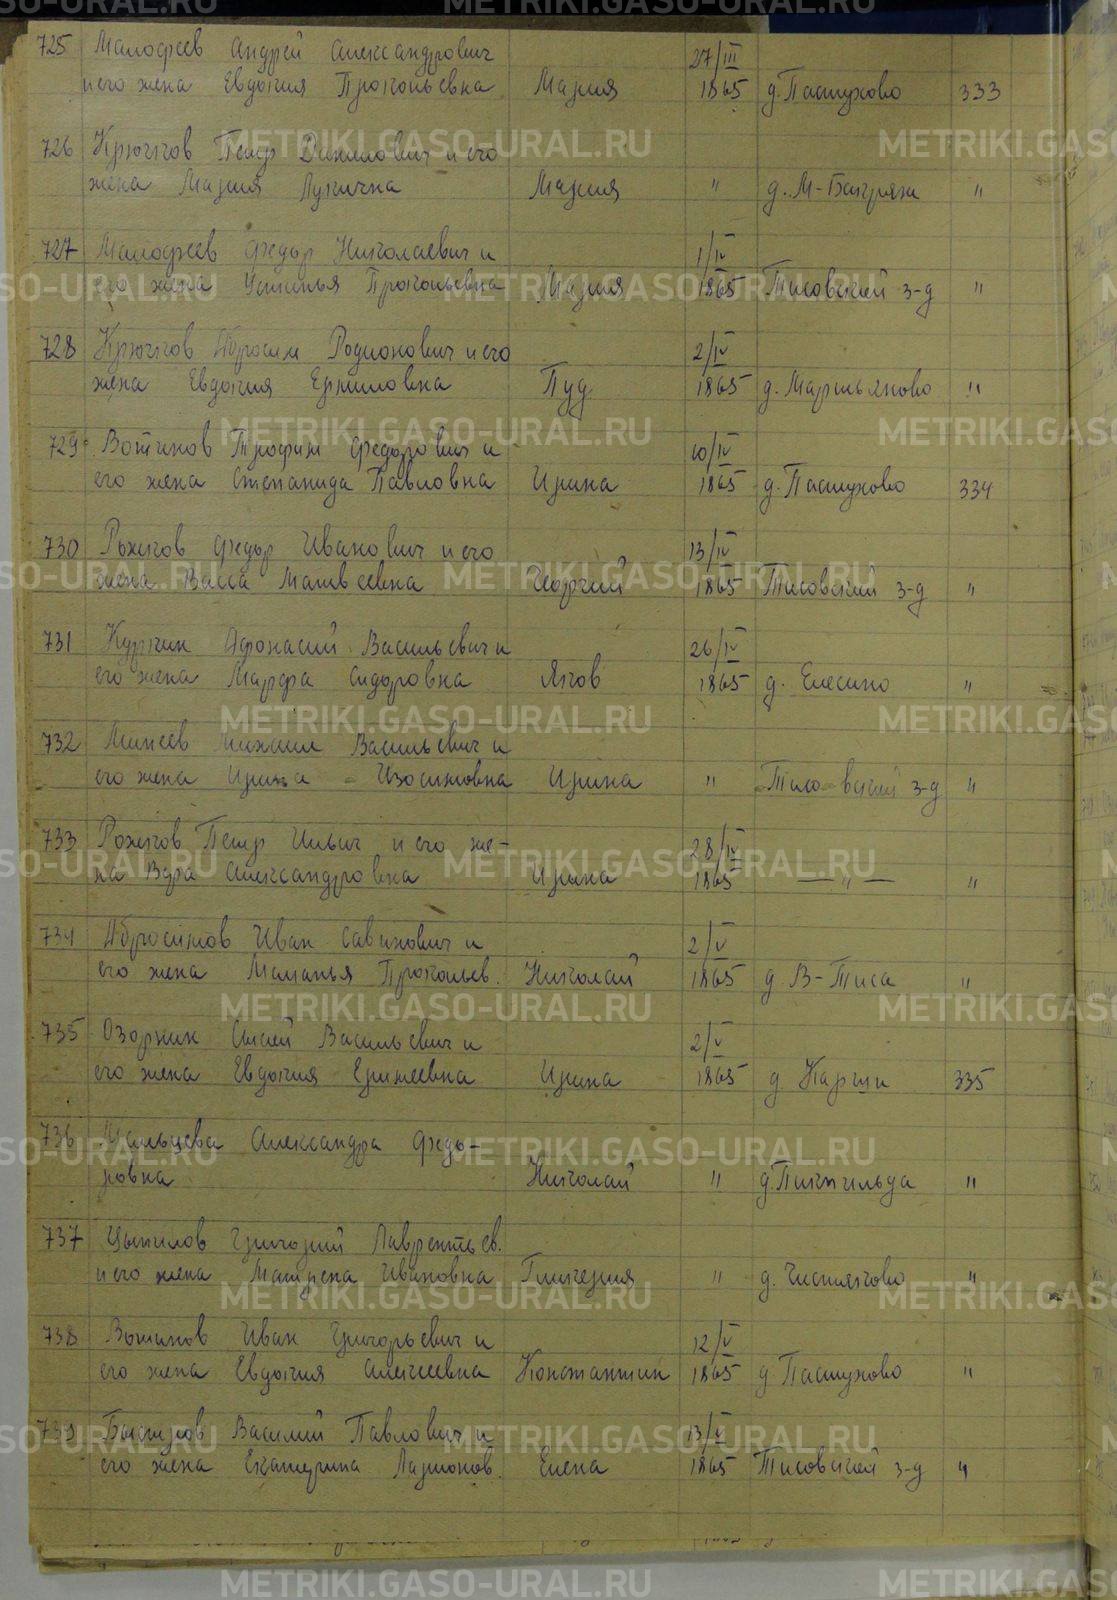 725 Малофеев Андрей Александрович 27/III
и его жена Евдокия Прокопьевна Мария 1865 д. Пастухово 333
726 Крючков Петр Данилович и его
жена Мария Лукична Мария " д. М-Бакряж "
727 Малофеев Федор Николаевич и 1/IV
его жена Устинья Прокопьевна Мария 1865 Тисовский з-д "
728 Крючков Абросим Родионович и его 2/IV
жена Евдокия Ермиловна Пуд 1865 д. Мартьяново "
729 Вотинов Трофим Федорович и 10/IV
его жена Степанида Павловна Ирина 1865 д. Пастухово 334
730 Рожков Федор Иванович и его 13/IV
жена Васса Матвеевна Георгий 1865 Тисовский з-д "
731 Куркин Афонасий Васильевич и 26/IV
его жена Марфа Сидоровна Яков 1865 д. Елесино "
732 Минеев Михаил Васильевич и
его жена Ирина Изосимовна Ирина " Тисовский з-д "
733 Рожков Петр Ильич и его же- 28/IV
на Вера Александровна Ирина 1865 — " — "
734 Абросимов Иван Савинович и 2/V
его жена Маланья Прокопьев. Николай 1865 д В-Тиса "
735 Озорнин Сысой Васильевич и 2/V
его жена Евдокия Еремеевна Ирина 1865 д Каржи 335
736 Мальцева Александра Федо-
ровна Николай " д. Пикильда "
737 Цыпилов Григорий Лаврентьев.
и его жена Матрена Ивановна Гликерия " д. Чистяково "
738 Вотинов Иван Григорьевич и 12/V
его жена Евдокия Алексеевна Константин 1865 д Пастухово "
739 Быстров Василий Павлович и 13/V
его жена Екатерина Ларионов. Елена 1865 Тисовский з-д "
METRIKI.GASO-URAL.RU